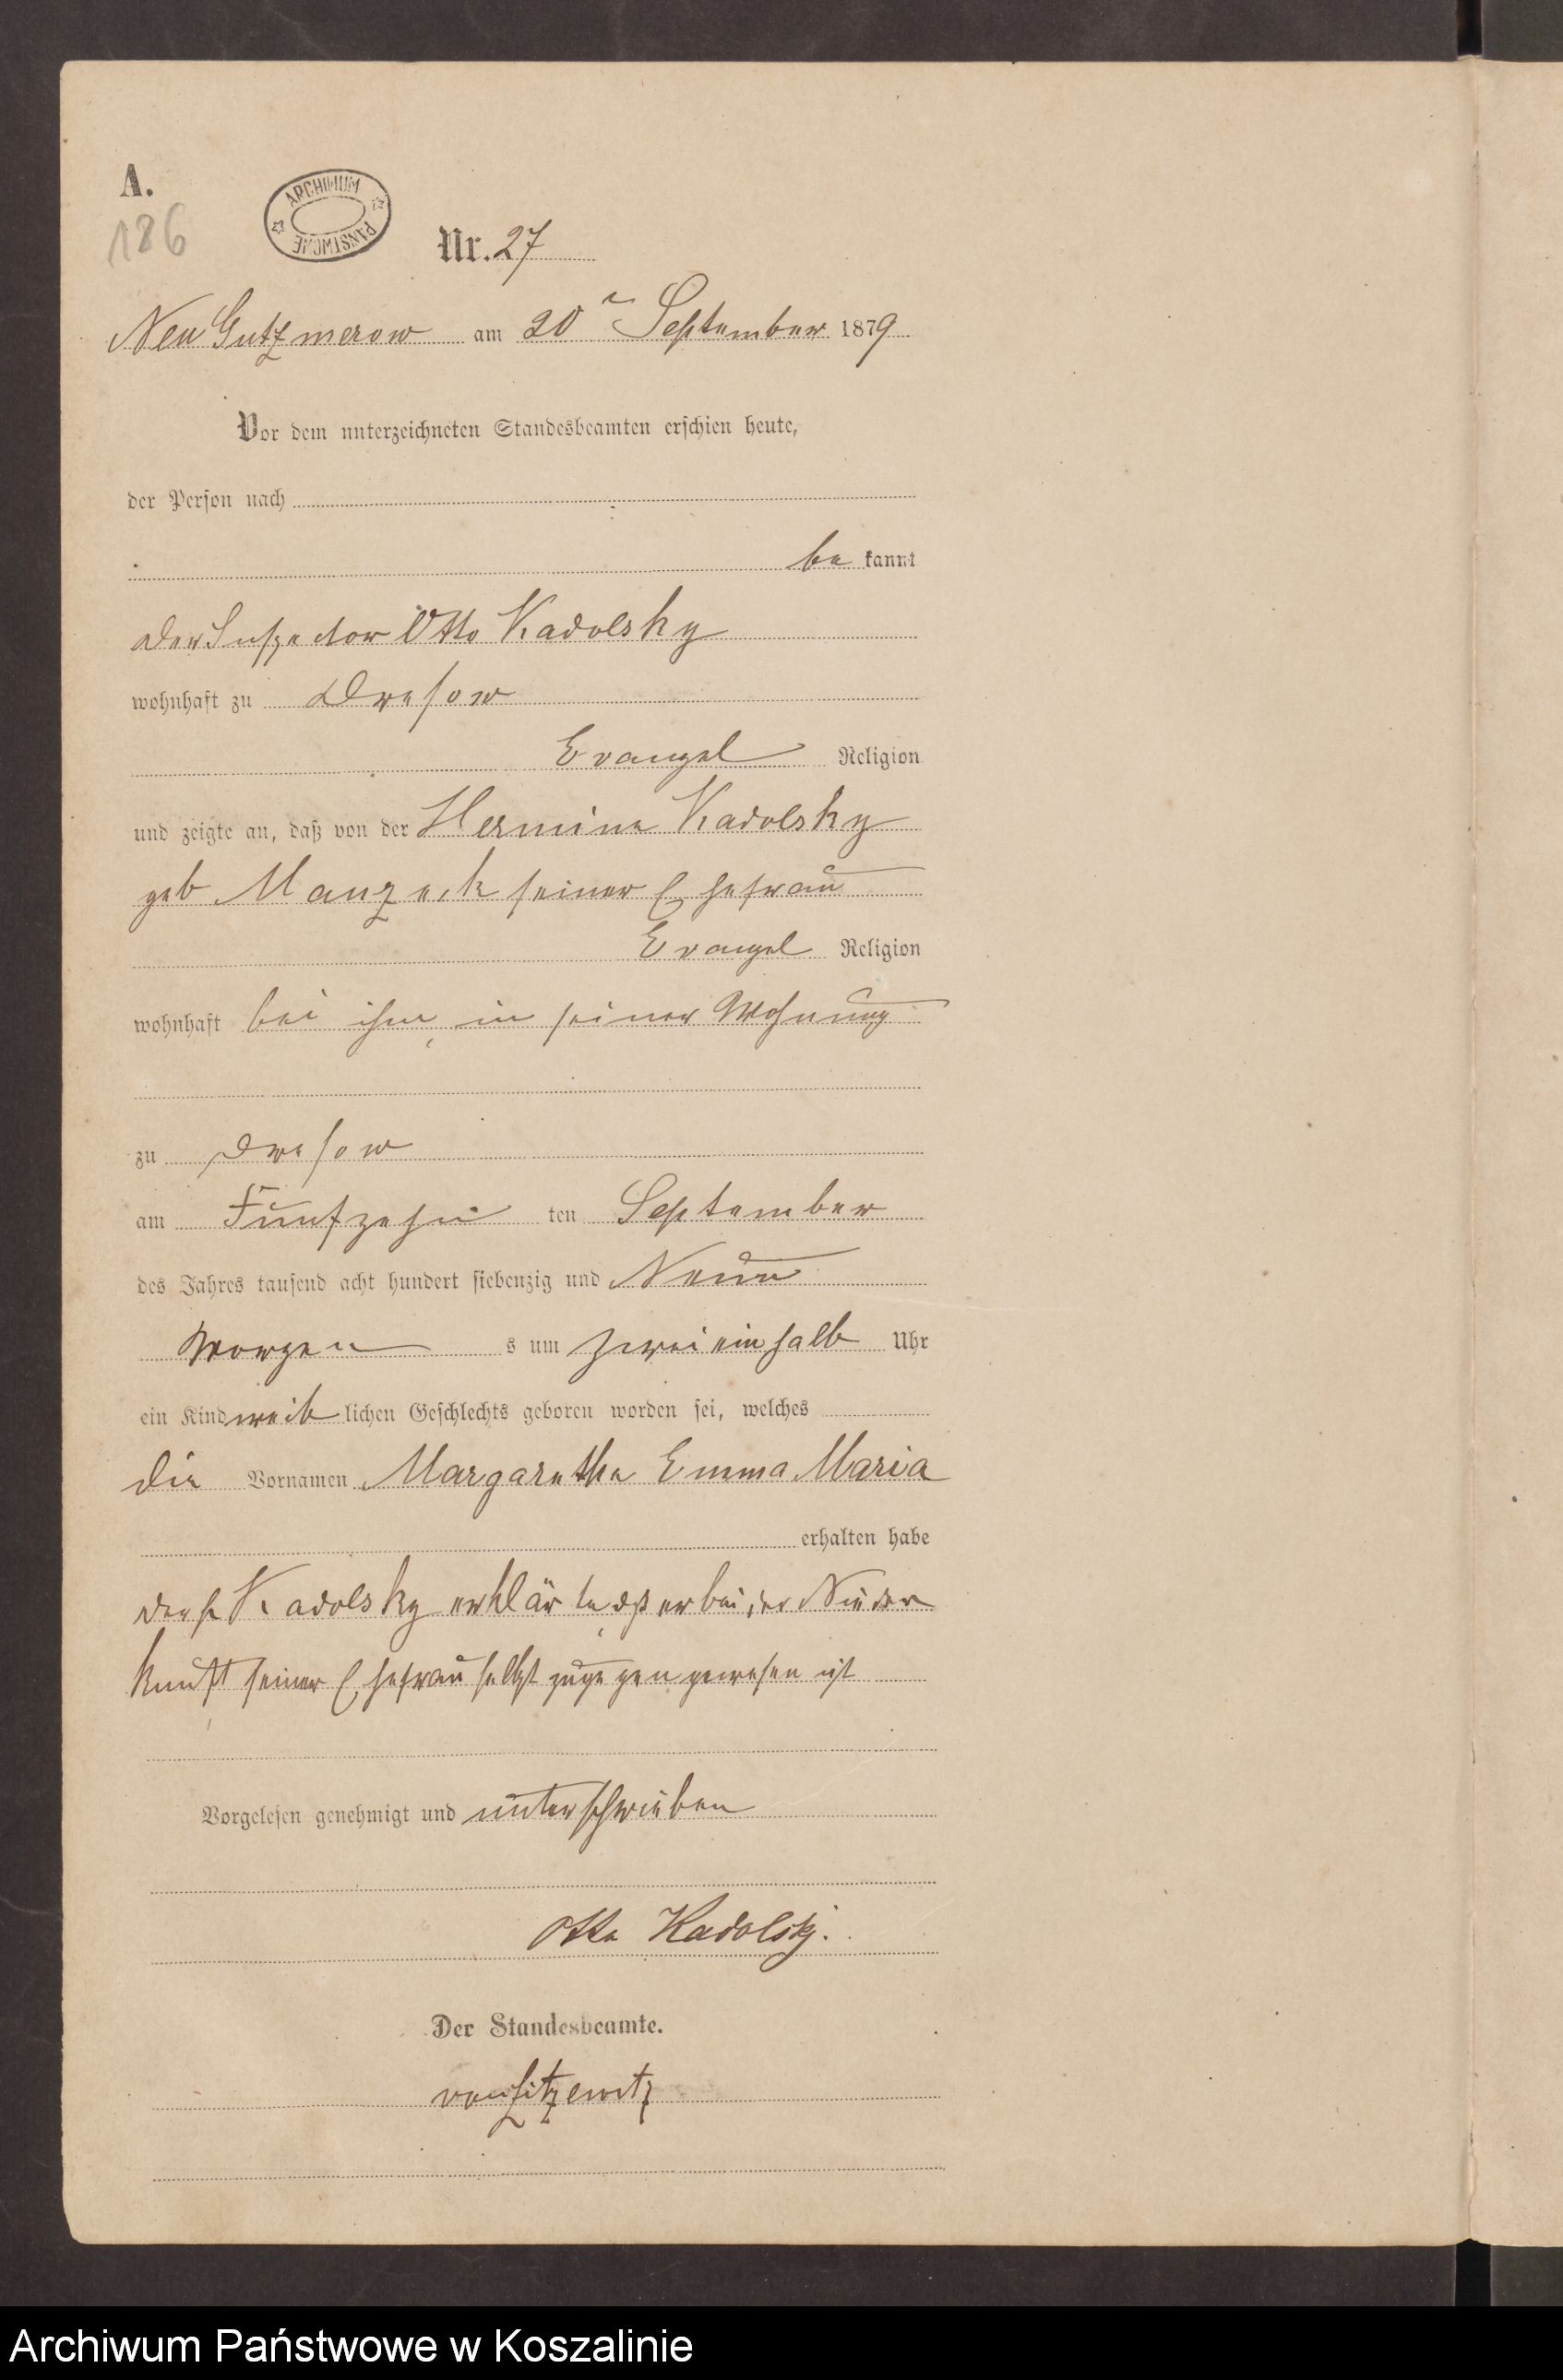 A.
186
ARCHIWUM PAŃSTWOWE
Nr. 27
Neu Gutzmerow am 20n September 1879
Vor dem unterzeichneten Standesbeamten erschien heute,
der Person nach
be kannt
Der Inspector Otto Kadolsky
wohnhaft zu Dresow
Evangel Religion
und zeigte an, daß von der Hermine Kadolsky
geb Manzeck seiner Ehefrau
Evangel Religion
wohnhaft bei ihm, in seiner Wohnung
zu Dresow
am Fünfzehn ten September
des Jahres tausend acht hundert siebenzig und Neun
Morgen s um zwei ein halb Uhr
ein Kind weib lichen Geschlechts geboren worden sei, welches
die Vornamen Margarethe Emma Maria
erhalten habe
Kadolsky erklärte, dß er bei der Nieder
kunft seiner Ehefrau selbst zugegen gewesen ist
Vorgelesen genehmigt und unterschrieben
Otto Kadolsky.
Der Standesbeamte.
von Zitzewitz
Archiwum Państwowe w Koszalinie